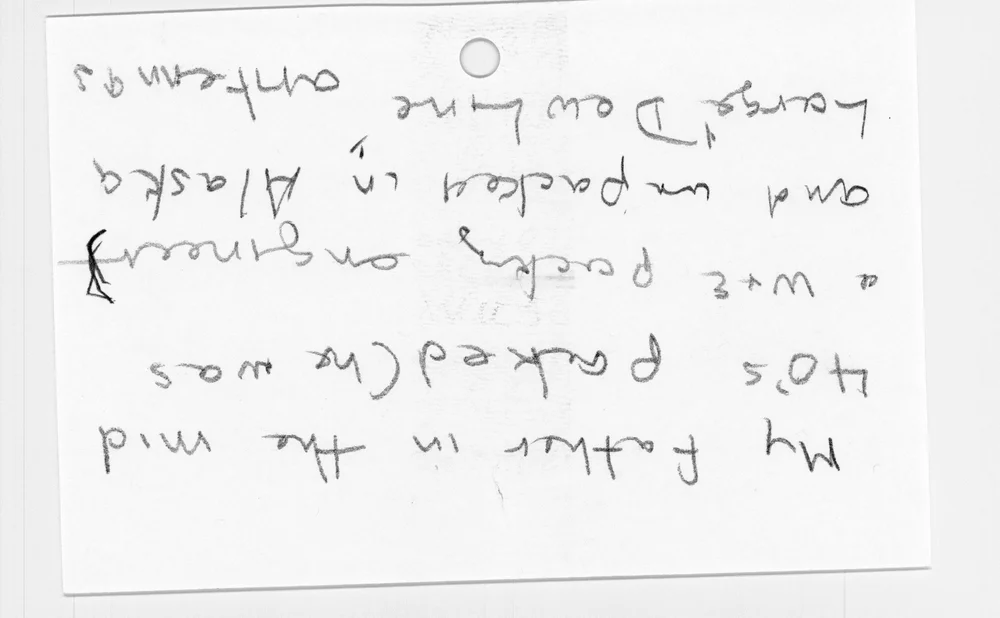 My Father in the mid
40's packed (he was
a W+E packing engineer)
and unpacked in Alaska
Large "Dew Line" antennas